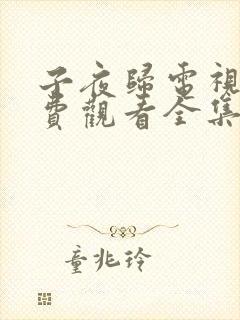 子夜歸電視
費觀看全集
童兆玲